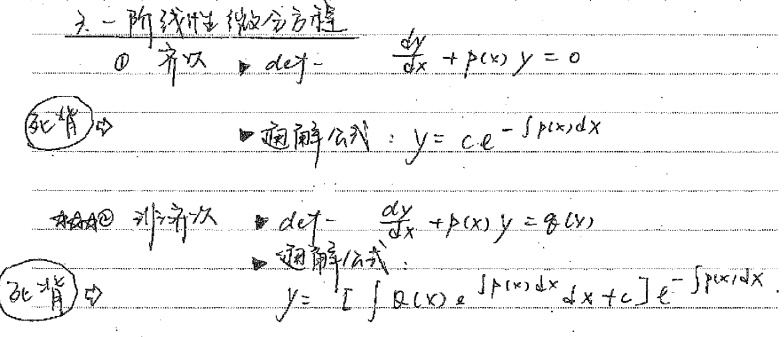 3. 一阶线性微分方程
① 齐次 ▶ def- dy/dx + p(x) y = 0
死背 ⇨ ▶ 通解公式: y = c e^{-∫p(x)dx}
☆☆☆② 非齐次 ▶ def- dy/dx + p(x) y = q(x)
▶ 通解公式:
死背 ⇨ y = [∫Q(x) e^{∫p(x)dx} dx + c] e^{-∫p(x)dx}.